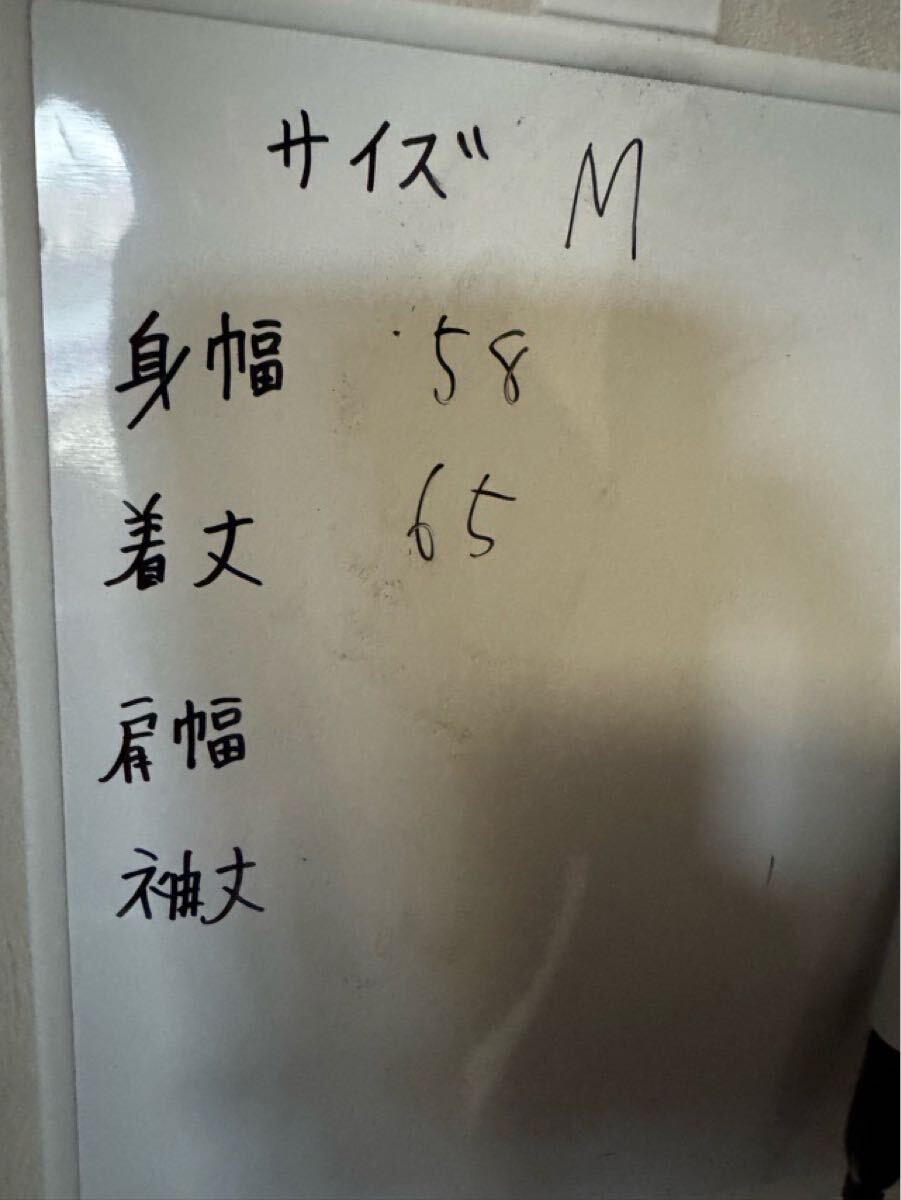 サイズ M
身幅 58
着丈 65
肩幅
袖丈